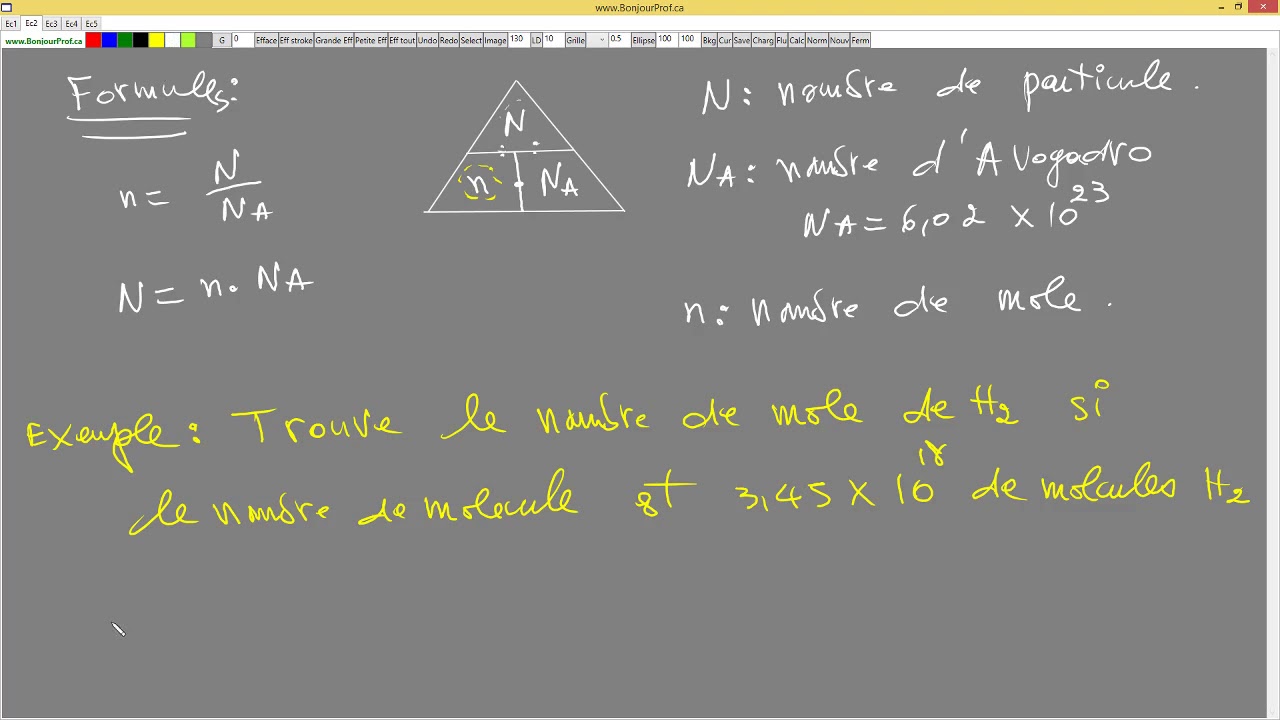 www.BonjourProf.ca
Ec1 Ec2 Ec3 Ec4 Ec5
www.BonjourProf.ca G 0 Efface Eff stroke Grande Eff Petite Eff Eff tout Undo Redo Select Image 130 LD 10 Grille 0.5 Ellipse 100 100 Bkg Cur Save Charg Flu Calc Norm Nouv Ferm
Formules:
n = N / NA
N = n. NA
N
n NA
N: nombre de particule.
NA: nombre d'Avogadro
NA = 6,02 × 10^23
n: nombre de mole.
Exemple: Trouve le nombre de mole de H2 si
le nombre de molecule est 3,45 × 10^18 de molcules H2